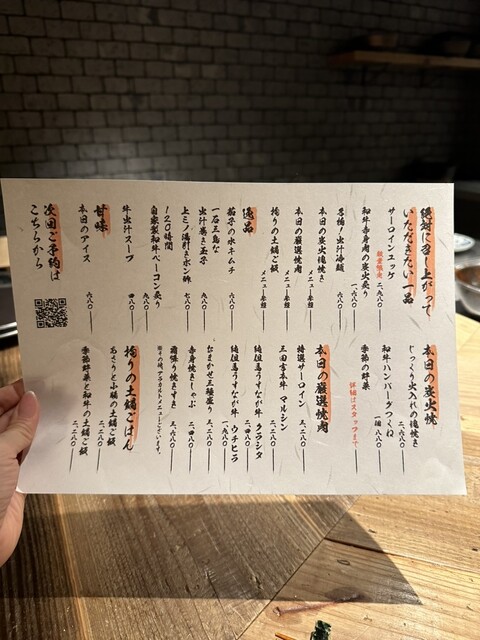 絶対に召し上がって
いただきたい一品
サーロインユッケ
数量限定 二、九八〇
和牛赤身肉の炭火炙り
一、八八〇
名物!出汁冷麺
本日の炭火塊焼き メニュー参照
本日の厳選焼肉 メニュー参照
拘りの土鍋ご飯 メニュー参照
逸品
茄子の水キムチ 六八〇
一石三鳥な
出汁巻き玉子 九八〇
上ミノ湯引きポン酢 七八〇
120時間
自家製和牛ベーコン炙り 九八〇
牛出汁スープ
甘味
本日のアイス 六八〇
次回ご予約は
こちらから
本日の炭火焼
じっくり火入れの塊焼き 二、六八〇
和牛ハンバーグつくね 一個 八八〇
季節の野菜 詳細はスタッフまで
本日の厳選焼肉
特選サーロイン 三、二八〇
三田宮本牛 マルシン 二、八八〇
純但馬うすなが牛 クラシタ 二、四八〇
純但馬うすなが牛 ウチヒラ 一、九八〇
なまかせ三種盛り 三、二八〇
赤身焼きしゃぶ 二、四八〇
霜降り焼きすき 三、二八〇
※その他、アラカルトメニューございます。
拘りの土鍋ごはん
あさりと小腸の土鍋ご飯 二、二八〇
季節野菜と和牛の土鍋ご飯 二、二八〇